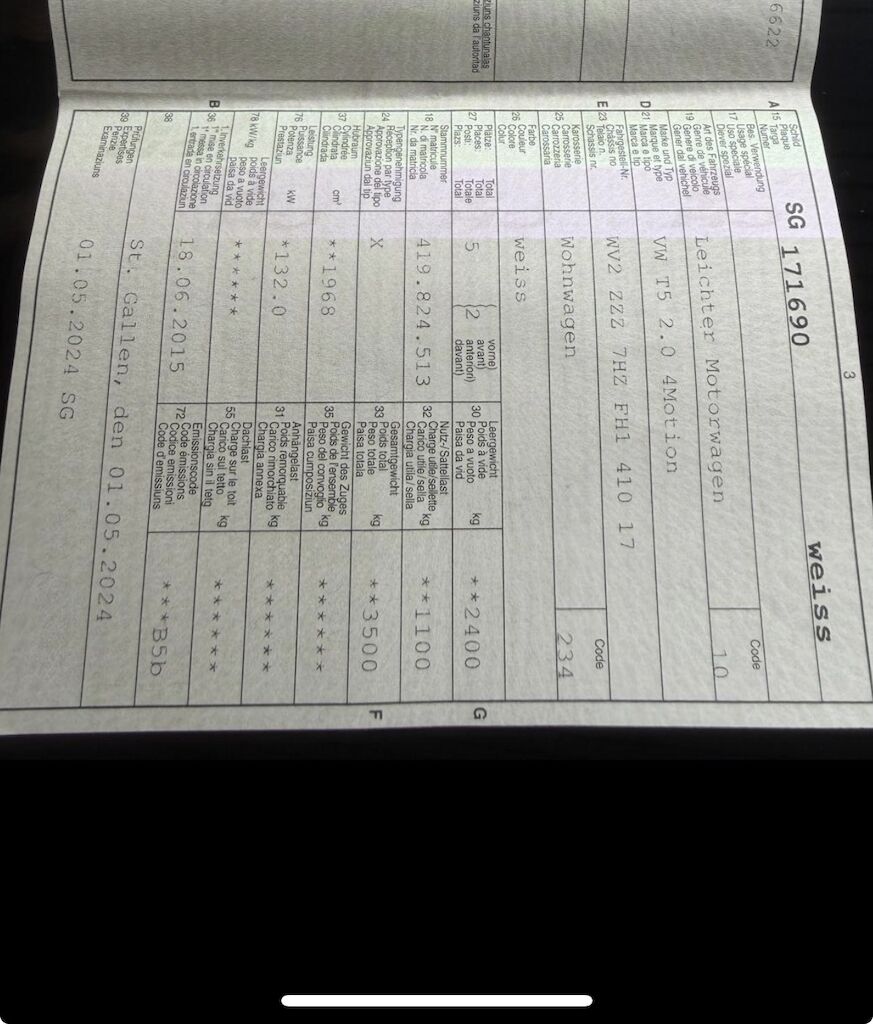 6622
ziuns chantunalas
ziuns da l'autoritad
3
A 15 Schild
Plaque
Targa
Numer
SG 171690
weiss
17 Bes. Verwendung
Usage spécial
Uso speciale
Diever spezial
Code
10
19 Art des Fahrzeugs
Genre de véhicule
Genere di veicolo
Gener dal vehichel
Leichter Motorwagen
D 21 Marke und Typ
Marque et type
Marca e tipo
Marca e tip
VW T5 2.0 4Motion
E 23 Fahrgestell-Nr.
Châssis no
Telaio n.
Schassis nr.
WV2 ZZZ 7HZ FH1 410 17
25 Karosserie
Carrosserie
Carrozzeria
Carossaria
Wohnwagen
Code
234
26 Farbe
Couleur
Colore
Colur
weiss
27 Plätze: Total
Places: Total
Posti: Totale
Plazs: Total
5
(2
vorne)
avant)
anteriori)
davant)
30 Leergewicht
Poids à vide
Peso a vuoto
Paisa da vid
kg
**2400
G
18 Stammnummer
N° matricule
N. di matricola
Nr. da matricla
419.824.513
32 Nutz-/Sattellast
Charge utile/sellette
Carico utile/sella
Chargia utila/sella
kg
**1100
24 Typengenehmigung
Réception par type
Approvazione del tipo
Approvaziun dal tip
X
33 Gesamtgewicht
Poids total
Peso totale
Paisa totala
kg
**3500
F
37 Hubraum
Cylindrée
Cilindrata
Cilindrada
cm³
**1968
35 Gewicht des Zuges
Poids de l'ensemble
Peso del convoglio
Paisa cumposiziun
kg
******
76 Leistung
Puissance
Potenza
Prestaziun
kW
*132.0
31 Anhängelast
Poids remorquable
Carico rimorchiato
Chargia annexa
kg
******
78 kW/kg
Leergewicht
poids à vide
peso a vuoto
paisa da vid
******
55 Dachlast
Charge sur le toit
Carico sul tetto
Chargia sin il tetg
kg
******
B 36 1. Inverkehrsetzung
1re mise en circulation
1a messa in circolazione
1. entrada en circulaziun
18.06.2015
72 Emissionscode
Code émissions
Codice emissioni
Code d'emissiuns
***B5b
38
St. Gallen, den 01.05.2024
39 Prüfungen
Expertises
Perizie
Examinaziuns
01.05.2024 SG